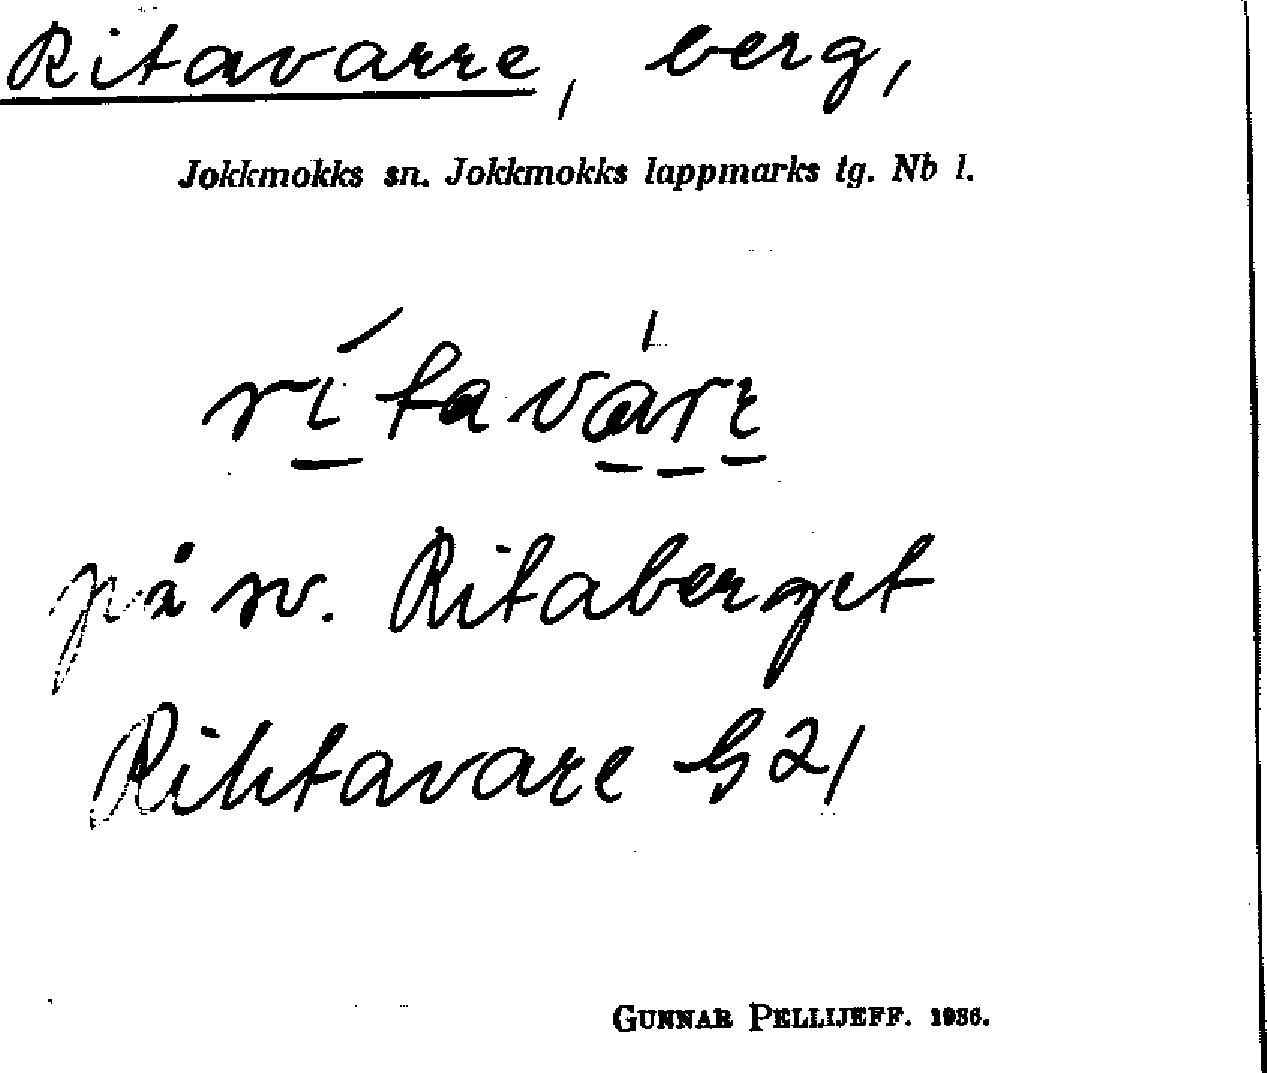 Ritavarre, berg,
Jokkmokks sn. Jokkmokks lappmarks tg. Nb l.
rítavárɛ
på sv. Ritaberget
Rihtavare G21
GUNNAR PELLIJEFF. 1936.